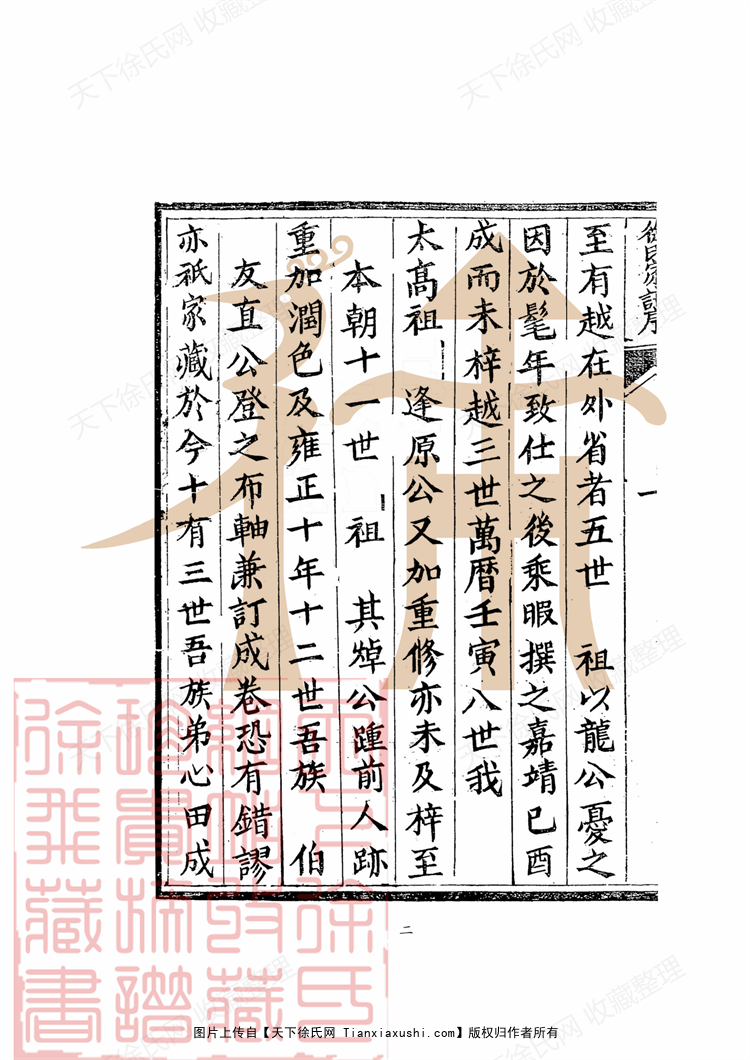 徐氏家譜序
一
至有越在外省者五世 祖以龍公憂之
因於髦年致仕之後乘暇撰之嘉靖已酉
成而未梓越三世萬曆壬寅八世我
太高祖 逢原公又加重修亦未及梓至
本朝十一世 祖 其焯公踵前人跡
重加潤色及雍正十年十二世吾族 伯
友直公登之布軸兼訂成卷恐有錯謬
亦祇家藏於今十有三世吾族弟心田成
二
天下徐氏网 收藏整理
图片上传自【天下徐氏网 Tianxiaxushi.com】版权归作者所有